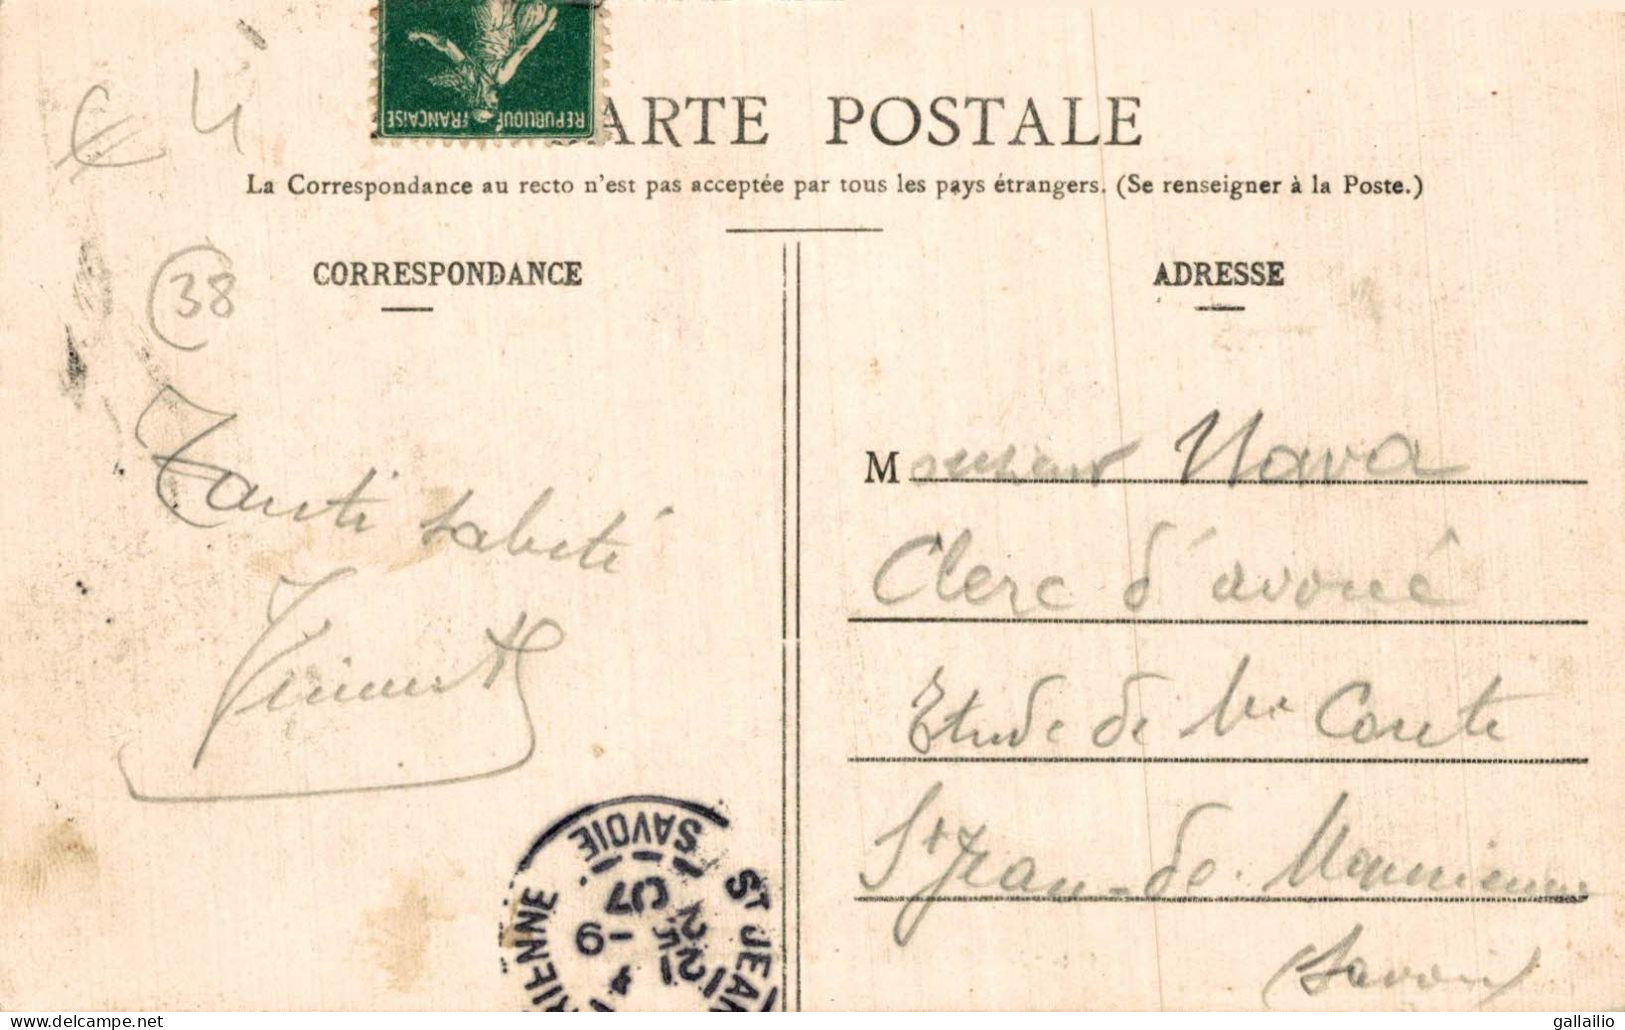 REPUBLIQUE FRANÇAISE
CARTE POSTALE
La Correspondance au recto n'est pas acceptée par tous les pays étrangers. (Se renseigner à la Poste.)
€ 4
38
CORRESPONDANCE
ADRESSE
Monsieur Nava
Clerc d'avoué
Etude de Me Conte
St Jean-de-Maurienne
(Savoie)
ST JEAN
RIENNE
SAVOIE
07
gallailio